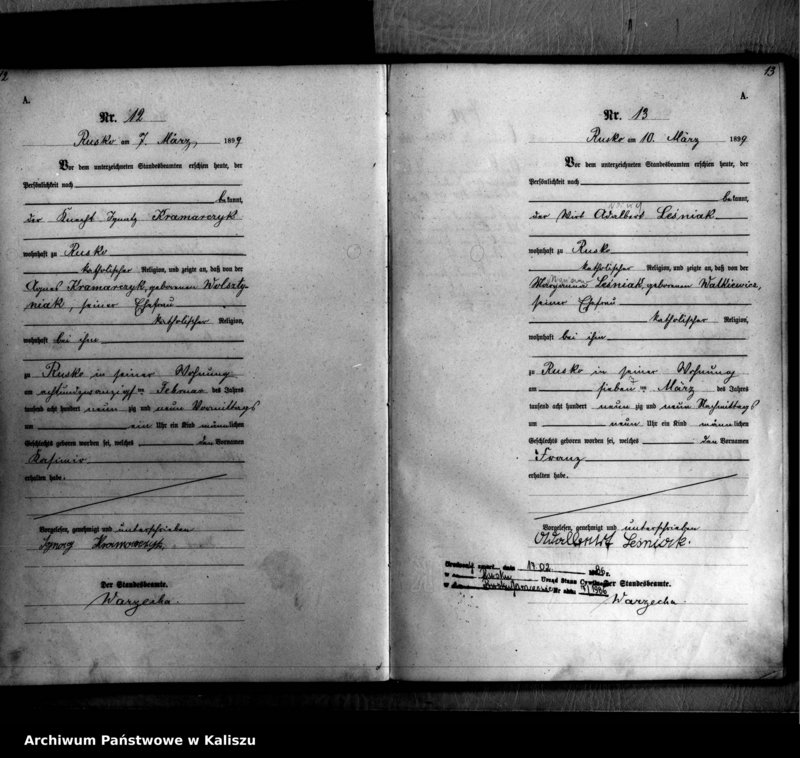 12
A.
Nr. 12
Rusko am 7. März, 1899
Vor dem unterzeichneten Standesbeamten erschien heute, der
Persönlichkeit nach
bekannt,
der Knecht Ignatz Kramarczyk
wohnhaft zu Rusko
katholischer Religion, und zeigte an, daß von der
Agnes Kramarczyk, geborenen Wolszty-
niak, seiner Ehefrau
katholischer Religion,
wohnhaft bei ihm
zu Rusko in seiner Wohnung
am achtundzwanzigsten Februar des Jahres
tausend acht hundert neun zig und neun Vormittags
um ein Uhr ein Kind männlichen
Geschlechts geboren worden sei, welches den Vornamen
Kasimir
erhalten habe.
Vorgelesen, genehmigt und unterschrieben
Ignacy Kramarczyk
Der Standesbeamte.
Warzecha.
13
A.
Nr. 13
Rusko am 10. März 1899
Vor dem unterzeichneten Standesbeamten erschien heute, der
Persönlichkeit nach
bekannt,
der Wirt Adalbert Leśniak
wohnhaft zu Rusko
katholischer Religion, und zeigte an, daß von der
Maryanna Leśniak, geborenen Watkiewicz,
seiner Ehefrau
katholischer Religion,
wohnhaft bei ihm
zu Rusko in seiner Wohnung
am sieben ten März des Jahres
tausend acht hundert neun zig und neun Nachmittags
um neun Uhr ein Kind männlichen
Geschlechts geboren worden sei, welches den Vornamen
Franz
erhalten habe.
Vorgelesen, genehmigt und unterschrieben
Adalbert Leśniak.
zmarł dnia 17.02. 1986 r.
w Rusku Urząd Stanu Cywilnego
w Nr aktu 7/1986
Der Standesbeamte.
Warzecha
Archiwum Państwowe w Kaliszu